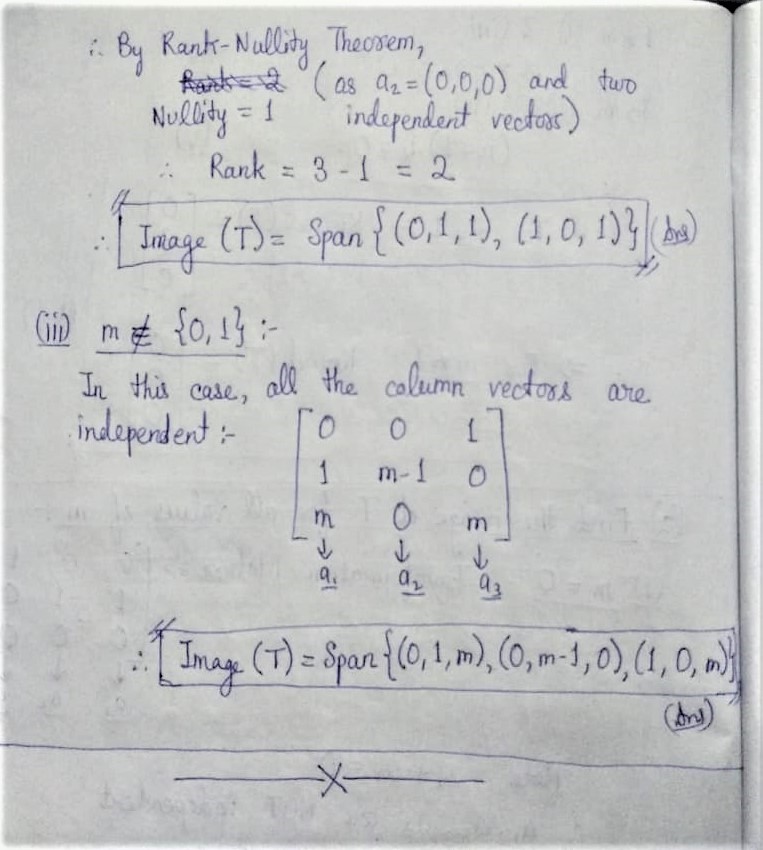 ∴ By Rank-Nullity Theorem,
Rank = 2 (as a₂ = (0,0,0) and two
Nullity = 1 independent vectors)
∴ Rank = 3 - 1 = 2
∴ Image (T) = Span {(0,1,1), (1,0,1)} (Ans)
(iii) m ∉ {0,1} :-
In this case, all the column vectors are
independent :-
0 0 1
1 m-1 0
m 0 m
↓ ↓ ↓
a₁ a₂ a₃
∴ Image (T) = Span {(0,1,m), (0,m-1,0), (1,0,m)}
(Ans)